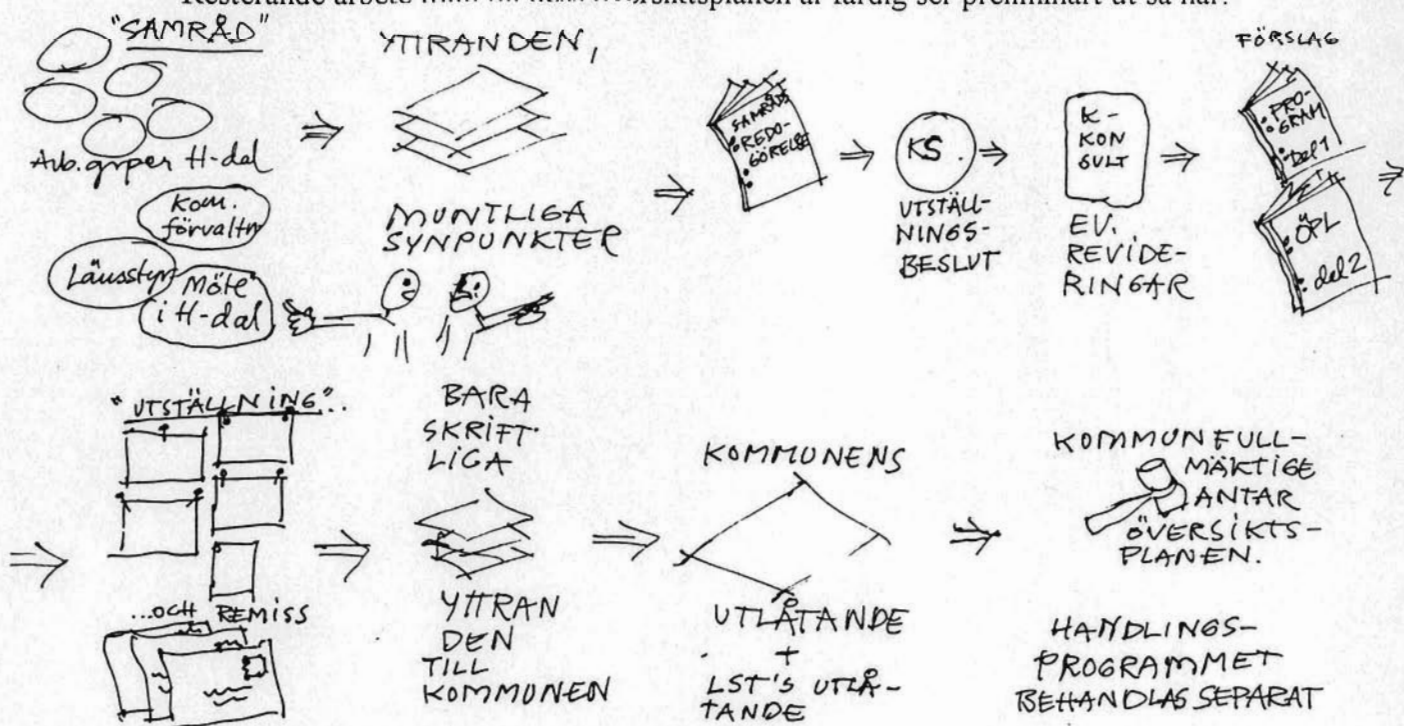 Resterande arbets
siktsplanen är färdig ser preliminärt ut så här:
"SAMRÅD"
Arb.grper H-dal
Kom.
förvaltn
Länsstyr
Möte
i H-dal
YTTRANDEN,
MUNTLIGA
SYNPUNKTER
SAMRÅDS
REDO-
GÖRELSE
KS.
UTSTÄLL-
NINGS-
BESLUT
K-
KON
SULT
EV.
REVIDE-
RINGAR
FÖRSLAG
PRO-
GRAM
Del 1
ÖPL
del 2
"UTSTÄLLNING"..
...OCH REMISS
BARA
SKRIFT-
LIGA
YTTRAN
DEN
TILL
KOMMUNEN
KOMMUNENS
UTLÅTANDE
+
LST'S UTLÅ-
TANDE
KOMMUNFULL-
MÄKTIGE
ANTAR
ÖVERSIKTS-
PLANEN.
HANDLINGS-
PROGRAMMET
BEHANDLAS SEPARAT